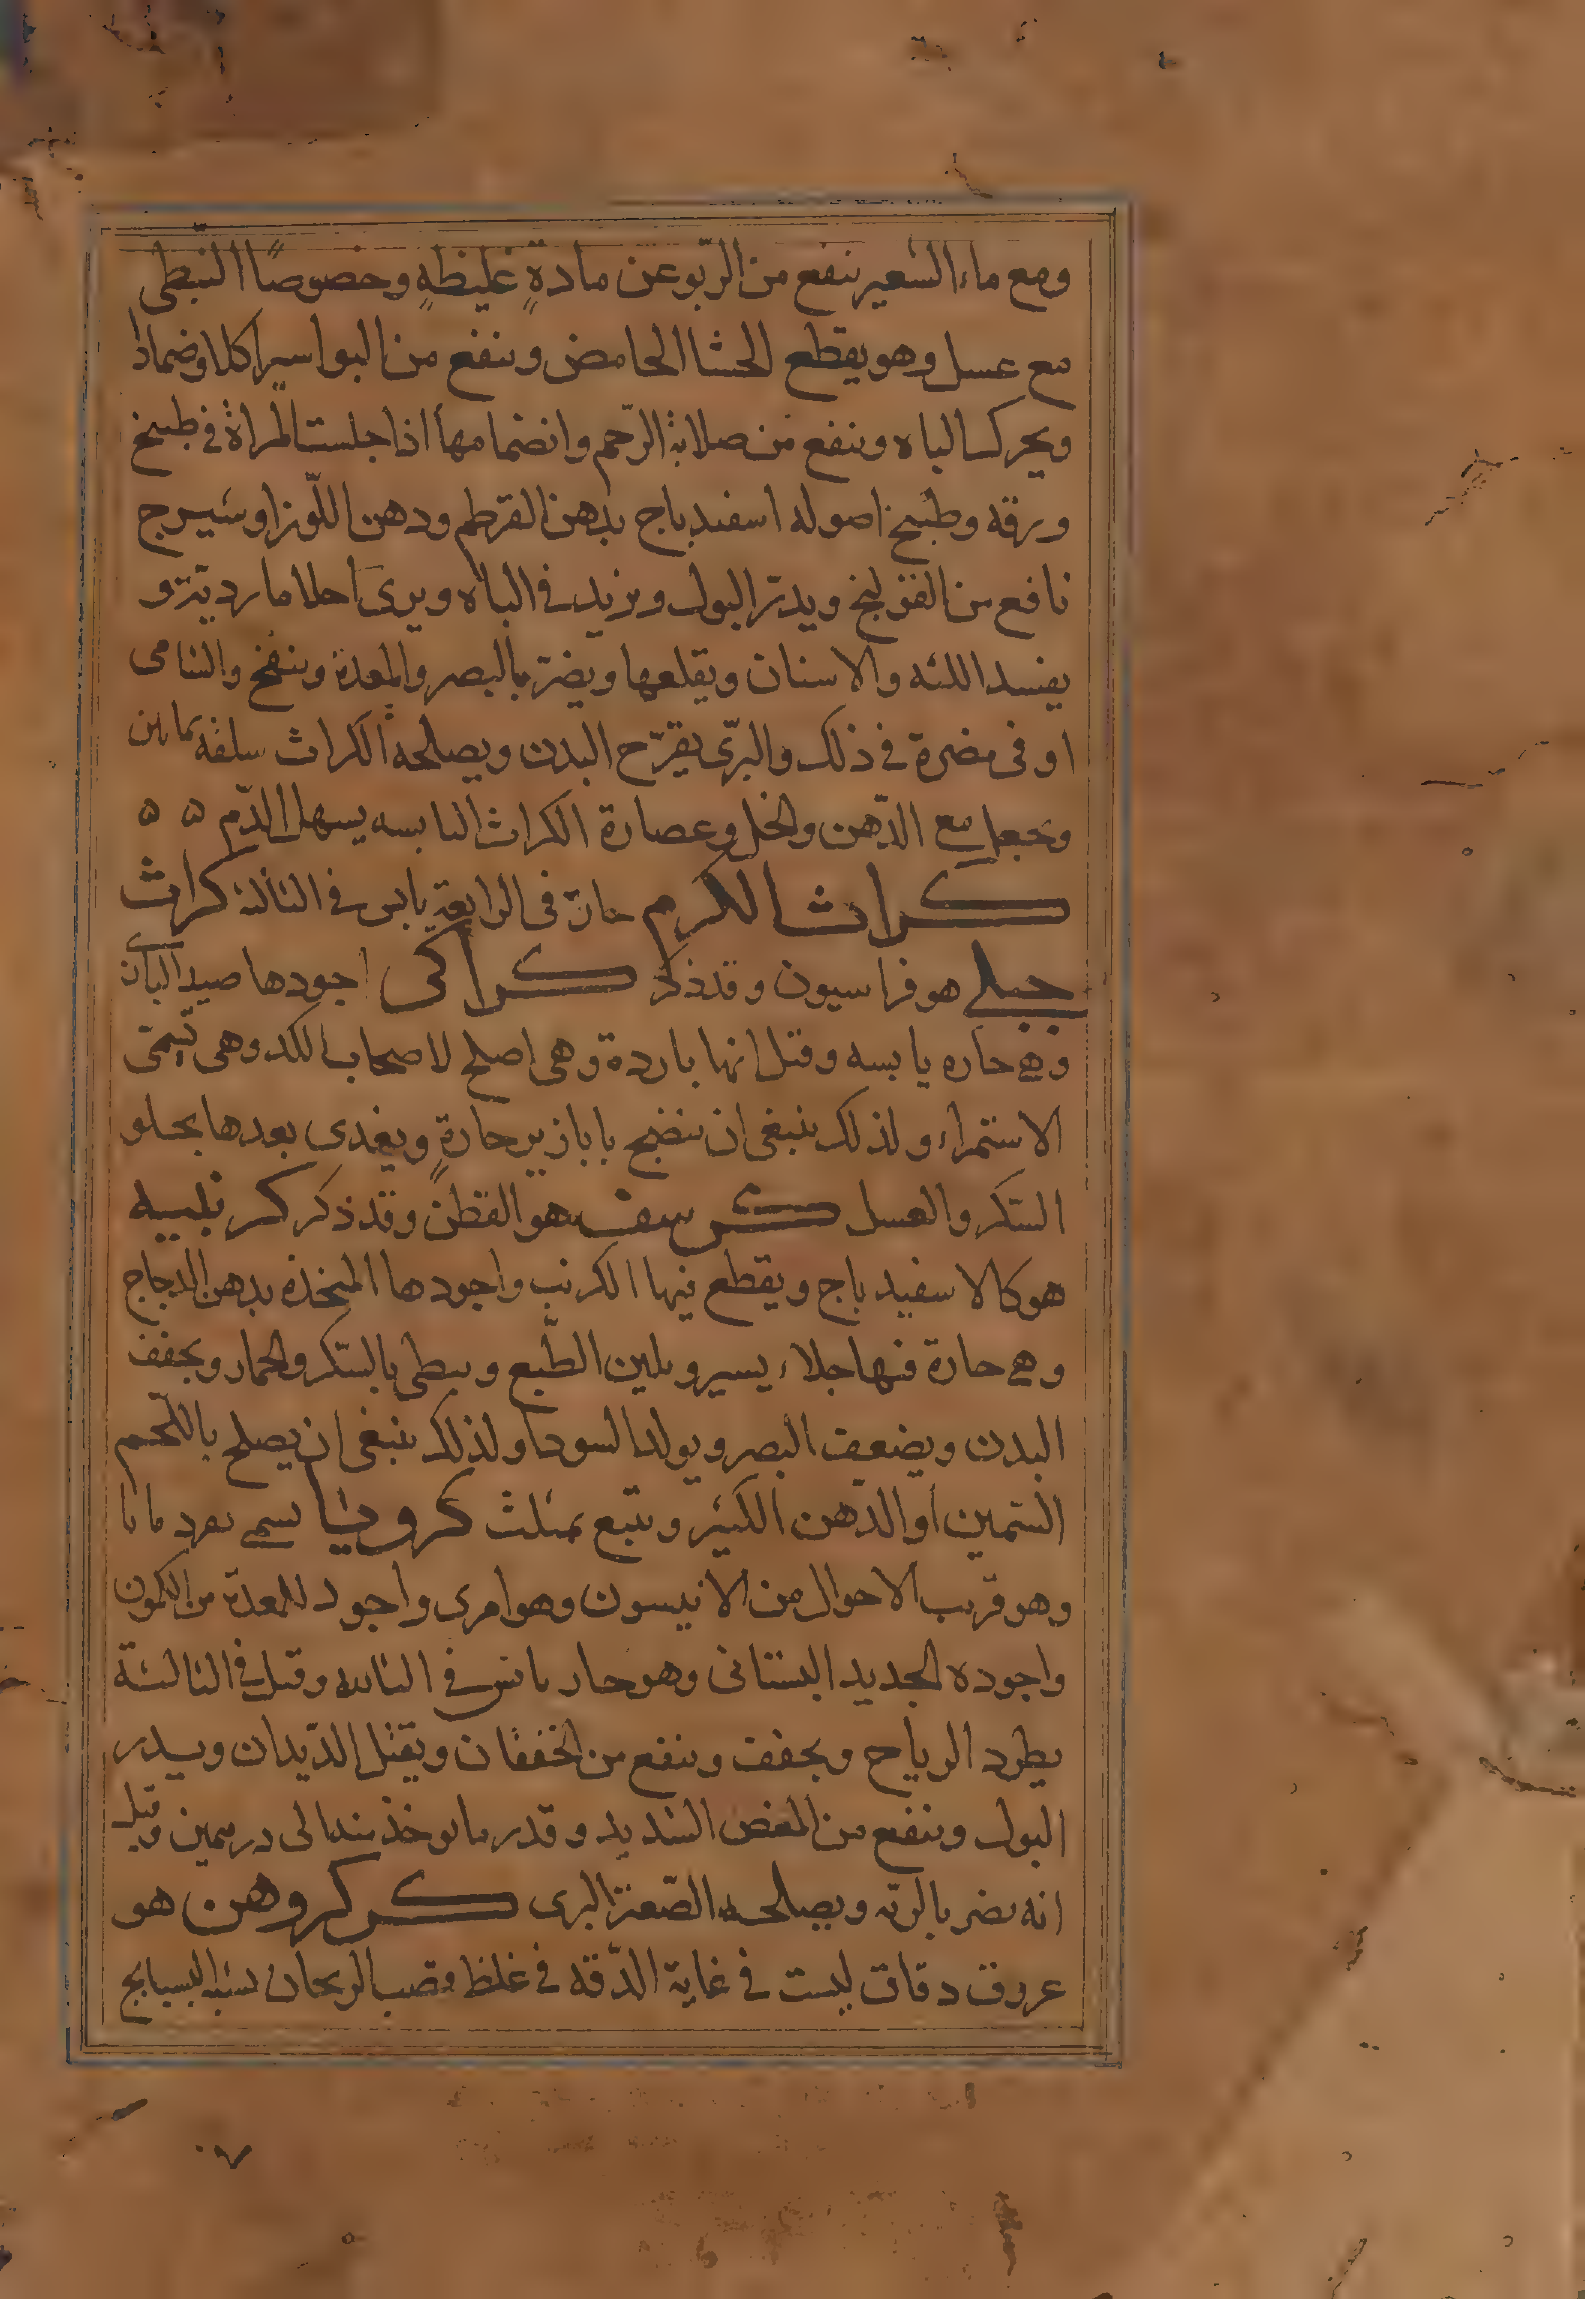 ومع ماء الشعير ينفع من الربو عن مادةٍ غليظةٍ وخصوصًا النبطى
مع عسل وهو يقطع الجشا الحامض وينفع من البواسير اكلا وضمادا
ويحرك الباه وينفع من صلابة الرّحم وانضمامها اذا جلست المراة فى طبيخ
ورقه وطبيخ اصوله اسفيدباج بدهن القرطم ودهن اللّوز او شيرج
نافع من القولنج ويدرّ البول ويزيد فى الباه ويرى احلاما رديّة و
يفسد اللثه والاسنان ويقلعها ويضرّ بالبصر والمعدة وينفخ والشامى
اوفى مضرة فى ذلك والبرّى يقرّح البدن ويصلحه الكراث سلقه بماين
ويجعل مع الدّهن والخل وعصارة الكراث اليابسه يسهل الدّم ه ه
كراث الكرم حارّ فى الرابعة يابس فى الثالثة كراث
جبلى هو فراسيون وقد ذكر كراكى اجودها صيد البازى
وهى حاره يابسه وقيل انها باردة وهى اصلح لاصحاب الكد وهى
الاستمراء ولذلك ينبغى ان تنضج بابازير حارةٍ ويغدى بعدها بحلو
السّكر والعسل كرسف هو القطن وقد ذكر كرنبيه
هو كالاسفيدباج ويقطع فيها الكرنب واجودها المتخذه بدهن الدجاج
وهى حارة فيها جلاء يسير ويلين الطّبع ويبطى بالسّكر والخمار ويجفف
البدن ويضعف البصر ويولد السودا ولذلك ينبغى ان يصلح باللّحم
السّمين او الدّهن الكثير ويتبع بمثلث كرويا يسمى
وهو قريب الاحوال من الانيسون وهو امرى واجود للمعدة من الكمون
واجوده الجديد البستانى وهو حار يابس فى الثانيه وقيل فى الثالثة
يطرد الرياح ويجفف وينفع من الخفقان ويقتل الدّيدان ويدر
البول وينفع من المغص الشديد وقدر ما يوخذ منه الى درهمين وقيل
انه يضر بالريّه ويصلحه الصّعتر البرى كركروهن هو
عروق دقاق ليست فى غاية الدّقه فى غلظ قصب الريحان يشبه البسبايج
٠٧